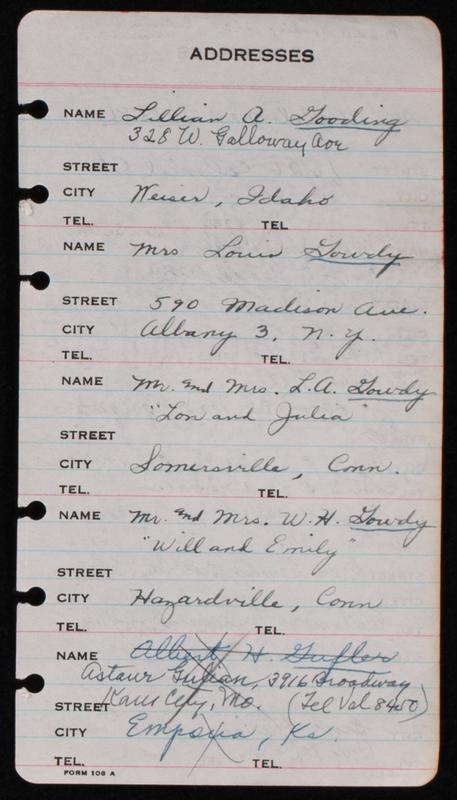 ADDRESSES
NAME Lillian A. Gooding
328 W. Galloway Ave
STREET
CITY Weiser, Idaho
TEL. TEL
NAME Mrs Louis Gowdy
STREET 590 Madison Ave.
CITY Albany 3, N.Y.
TEL. TEL.
NAME Mr. and Mrs. L.A. Gowdy
"Lon and Julia"
STREET
CITY Somersville, Conn.
TEL. TEL.
NAME Mr. and Mrs. W.H. Gowdy
"Will and Emily"
STREET
CITY Hazardville, Conn
TEL. TEL.
NAME Albert H. Gufler
3916 Broadway
STREET Kans City, Mo. (Tel Val 8450)
CITY Emporia, Ks.
TEL. TEL.
FORM 108 A